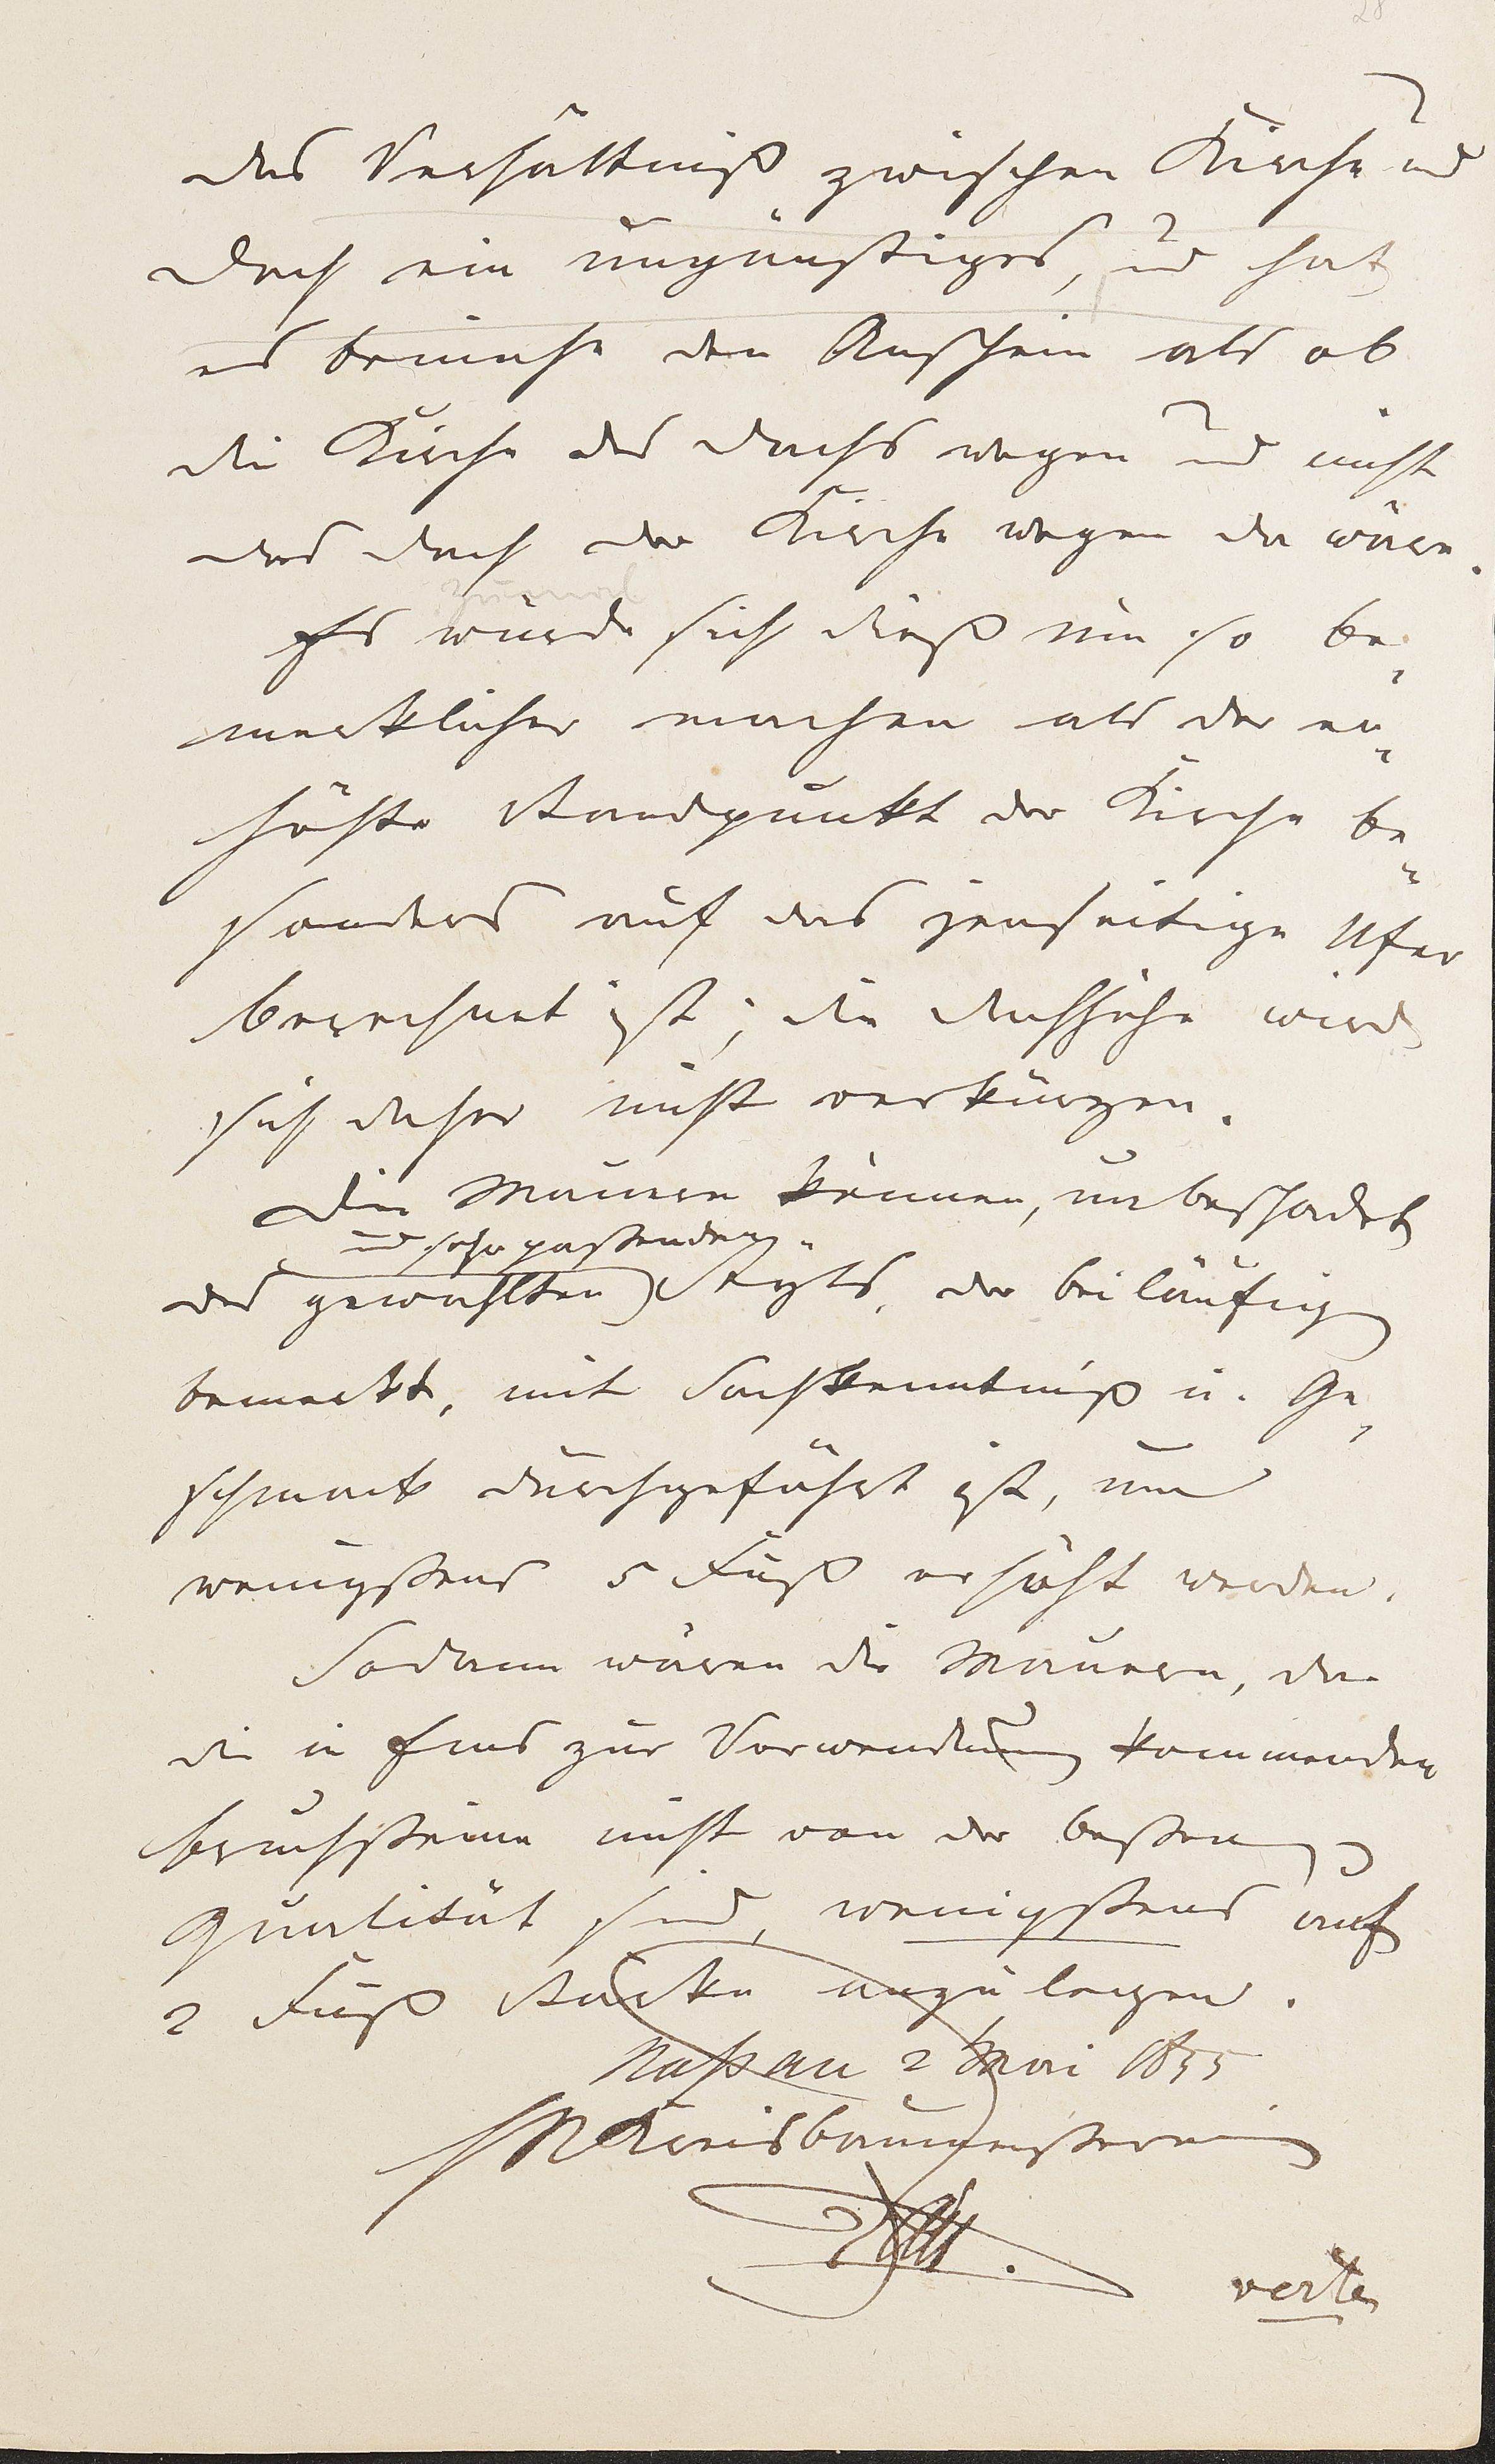 28
das Verhältniß zwischen Kirche und
Dach ein ungünstiges, und hat
es beinahe den Anschein als ob
die Kirche des Dachs wegen und nicht
das Dach der Kirche wegen da wäre.
zumal
Es würde sich dieß um so be-
merklicher machen als der er-
höhte Standpunkt der Kirche be-
sonders auf das jenseitige Ufer
berechnet ist; die Dachhöhe wird
sich daher nicht verkürzen.
Die Mauern können, unbeschadet
und sehr paßenden
des gewählten Styls, der beiläufig
bemerkt, mit Sachkenntniß u. Ge-
schmack durchgeführt ist, um
wenigstens 5 Fuß erhöht werden.
Sodann wären die Mauern, da
die in Ems zur Verwendung kommenden
Bruchsteine nicht von der besten
Qualität sind, wenigstens auf
2 Fuß Stärke anzulegen.
Naßau 2 Mai 1855
HN Kreisbaumeisterei
verte